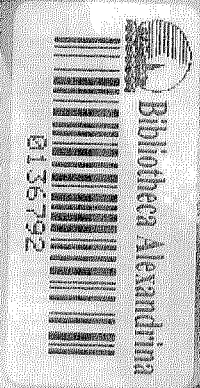 Bibliotheca Alexandrina
0136792